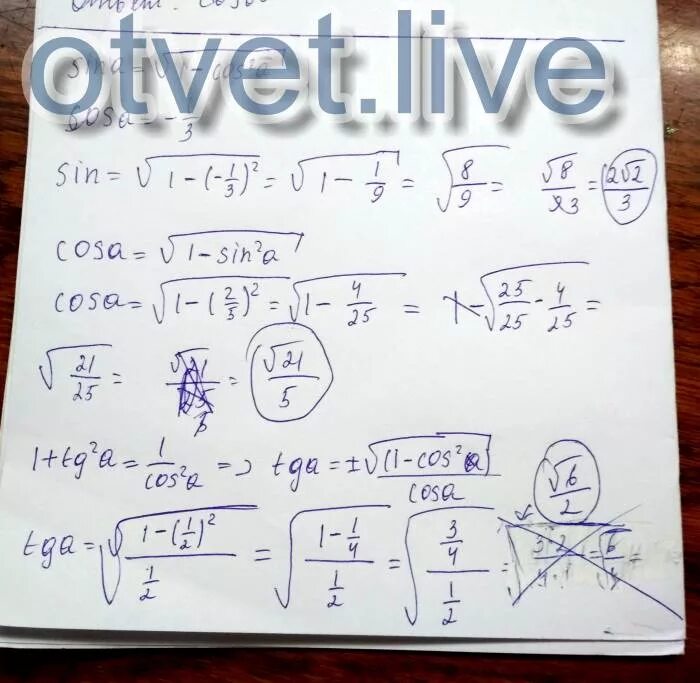 Ответ: cosα
otvet.live
sina = √(1 - cos²a)
cosa = - 1/3
sin = √(1 - (-1/3)²) = √(1 - 1/9) = √(8/9) = √8/3 = 2√2/3
cosa = √(1 - sin²a)
cosa = √(1 - (2/5)²) = √(1 - 4/25) = √(25/25 - 4/25) =
√(21/25) = = √21/5
1 + tg²a = 1/cos²a => tga = ±√(1 - cos²a)/cosa
√6/2
tga = √((1 - (1/2)²)/(1/2)) = √((1 - 1/4)/(1/2)) = √((3/4)/(1/2)) =